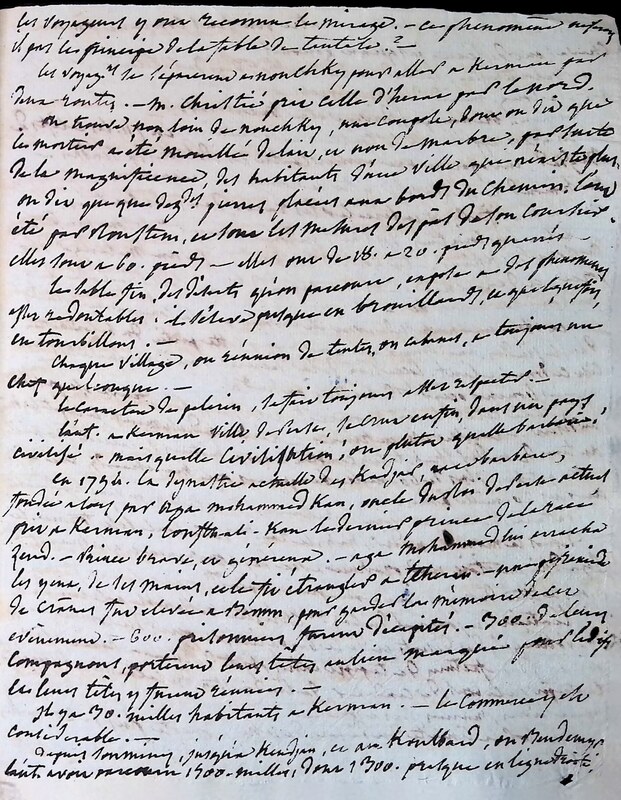 les voyageurs y ont reconnu le mirage. – ce phénomène
il pas le principe de la fable de tentale ? –
les voyag.rs se séparèrent a nouchky pour aller a Kerman par
deux routes. – M. Christié prit celle d'herat par le nord.
on trouve non loin de nouchky, une coupole, dont on dit que
le mortier a été mouillé de lait, et non de marbre, par suite
de la magnificence, des habitants d'une ville qui n'existe plus.
on dit que que pierres placées aux bords du chemin, l'ont
été par roustem, et sont les mesures des pas de son coursier.
elles sont a 60. pieds – elles ont de 18. a 20. pieds quarrés –
le sable fin, des déserts qu'on parcourt, expose a des phénomènes
assez redoutables. il s'élève presque en brouillards, et quelquefois,
en tourbillons. –
chaque village, ou réunion de tentes, ou cabanes, a toujours un
chef quelconque. –
le caractère de pelerin, se fait toujours assez respecter. –
l'aut. a Kerman ville de Perse, se crut enfin, dans un pays
civilisé. – mais quelle civilisation, ou plutôt quelle barbarie,
en 1794. la dynastie actuelle des Kadjar, race barbare,
fondée alors par Aga mohammed Kan, oncle du roi de Perse actuel
prit a Kerman, Louthf-ali-Kan le dernier prince de la race
Zend. – Prince brave, et généreux. – aga Mohammed lui arracha
les yeux, de ses mains, et le fit étrangler a téhéran – une pyramide
de crânes fut elevée a Bemm, pour garder la mémoire de cet
evénement. – 600. prisonniers furent décapités. – 300. de leurs
compagnons, porterent leurs têtes au lieu marqué
et leurs têtes y furent réunies. –
Il y a 30. milles habitants a Kerman. – le Commerce y est
considérable. –
Depuis sonminy, jusqu'a
l'aut. avoit parcouru 1500. milles, dont 1300. presque en ligne droite,